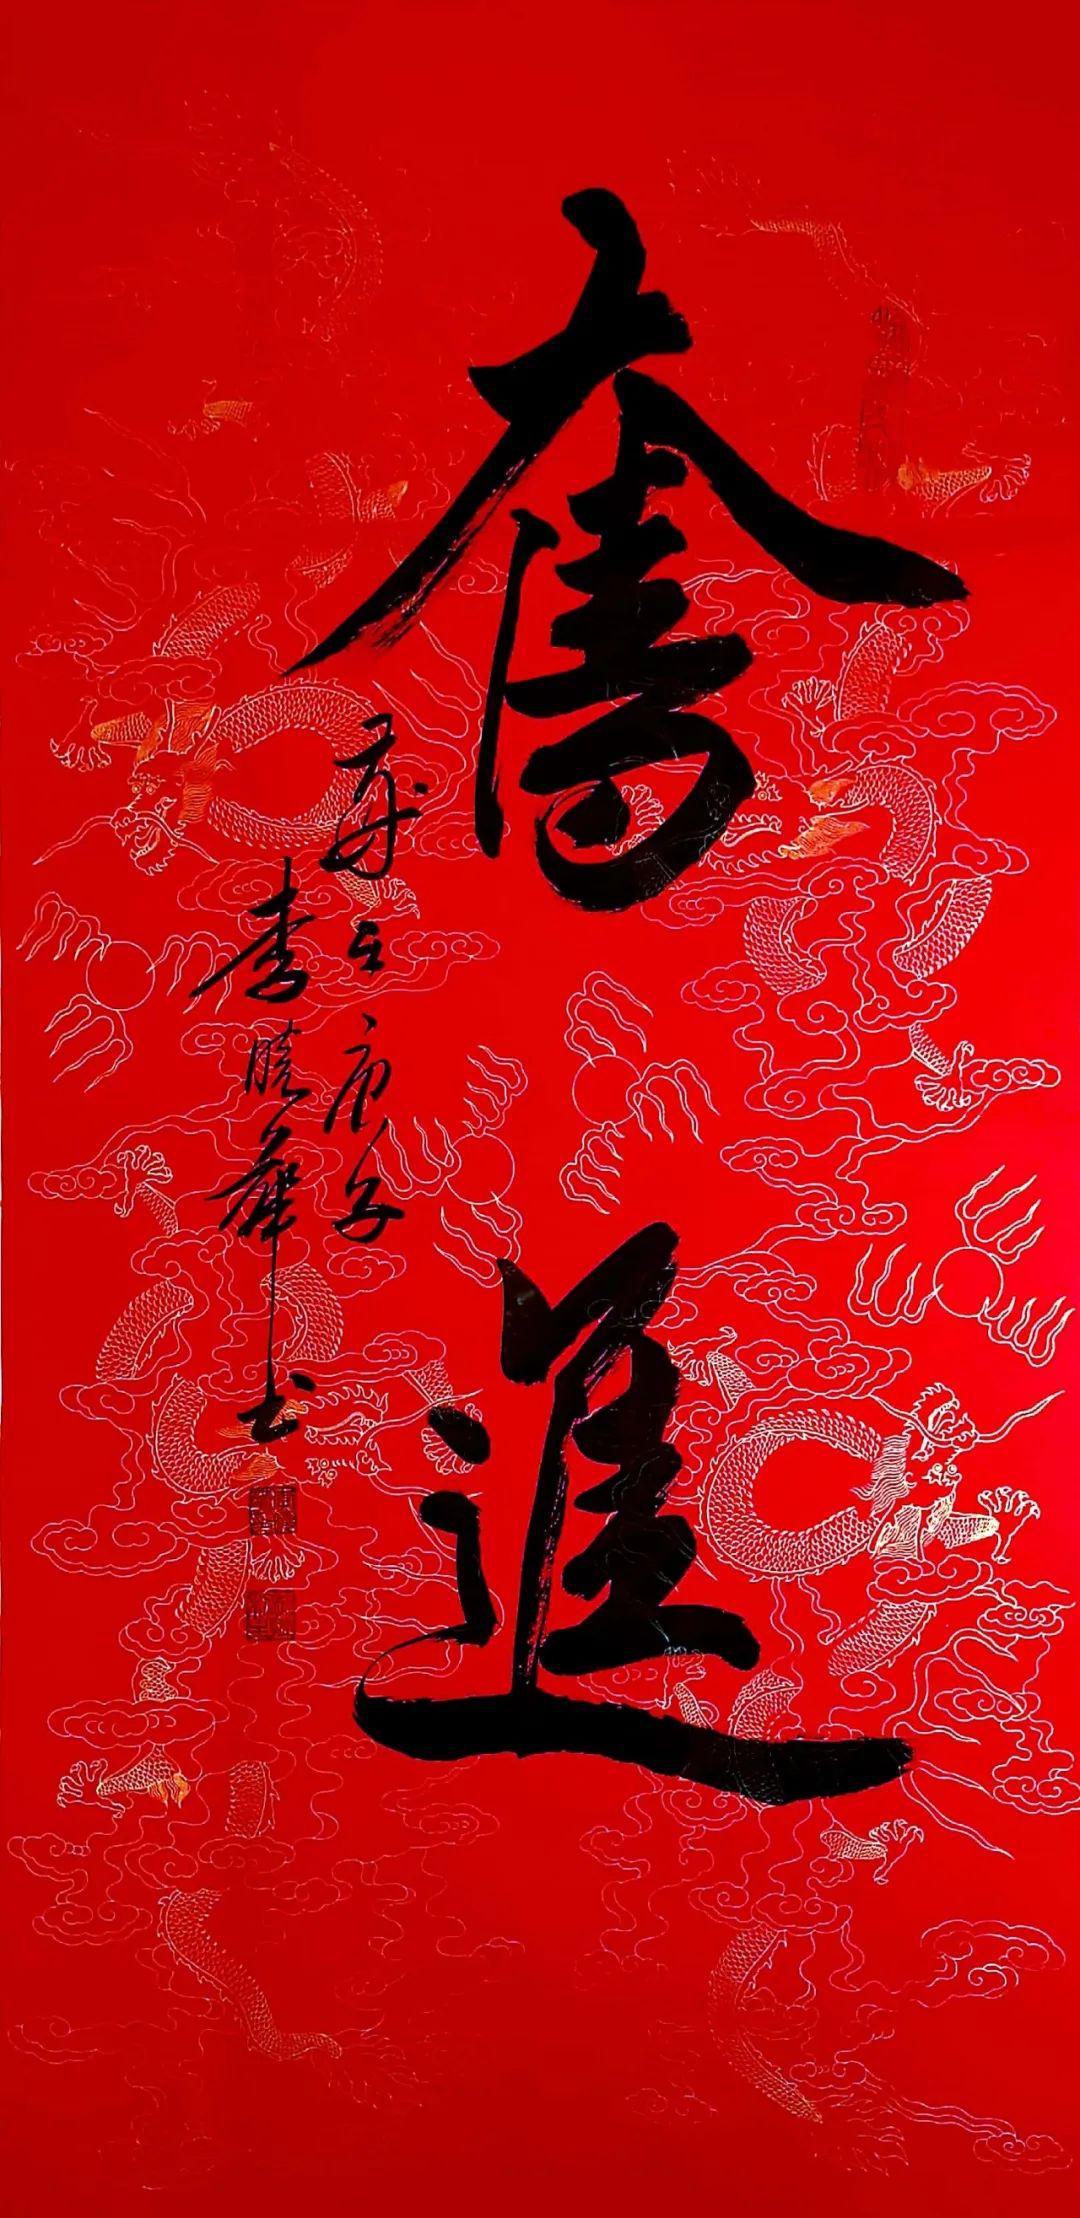 奮進
歲在庚子
李曉華书